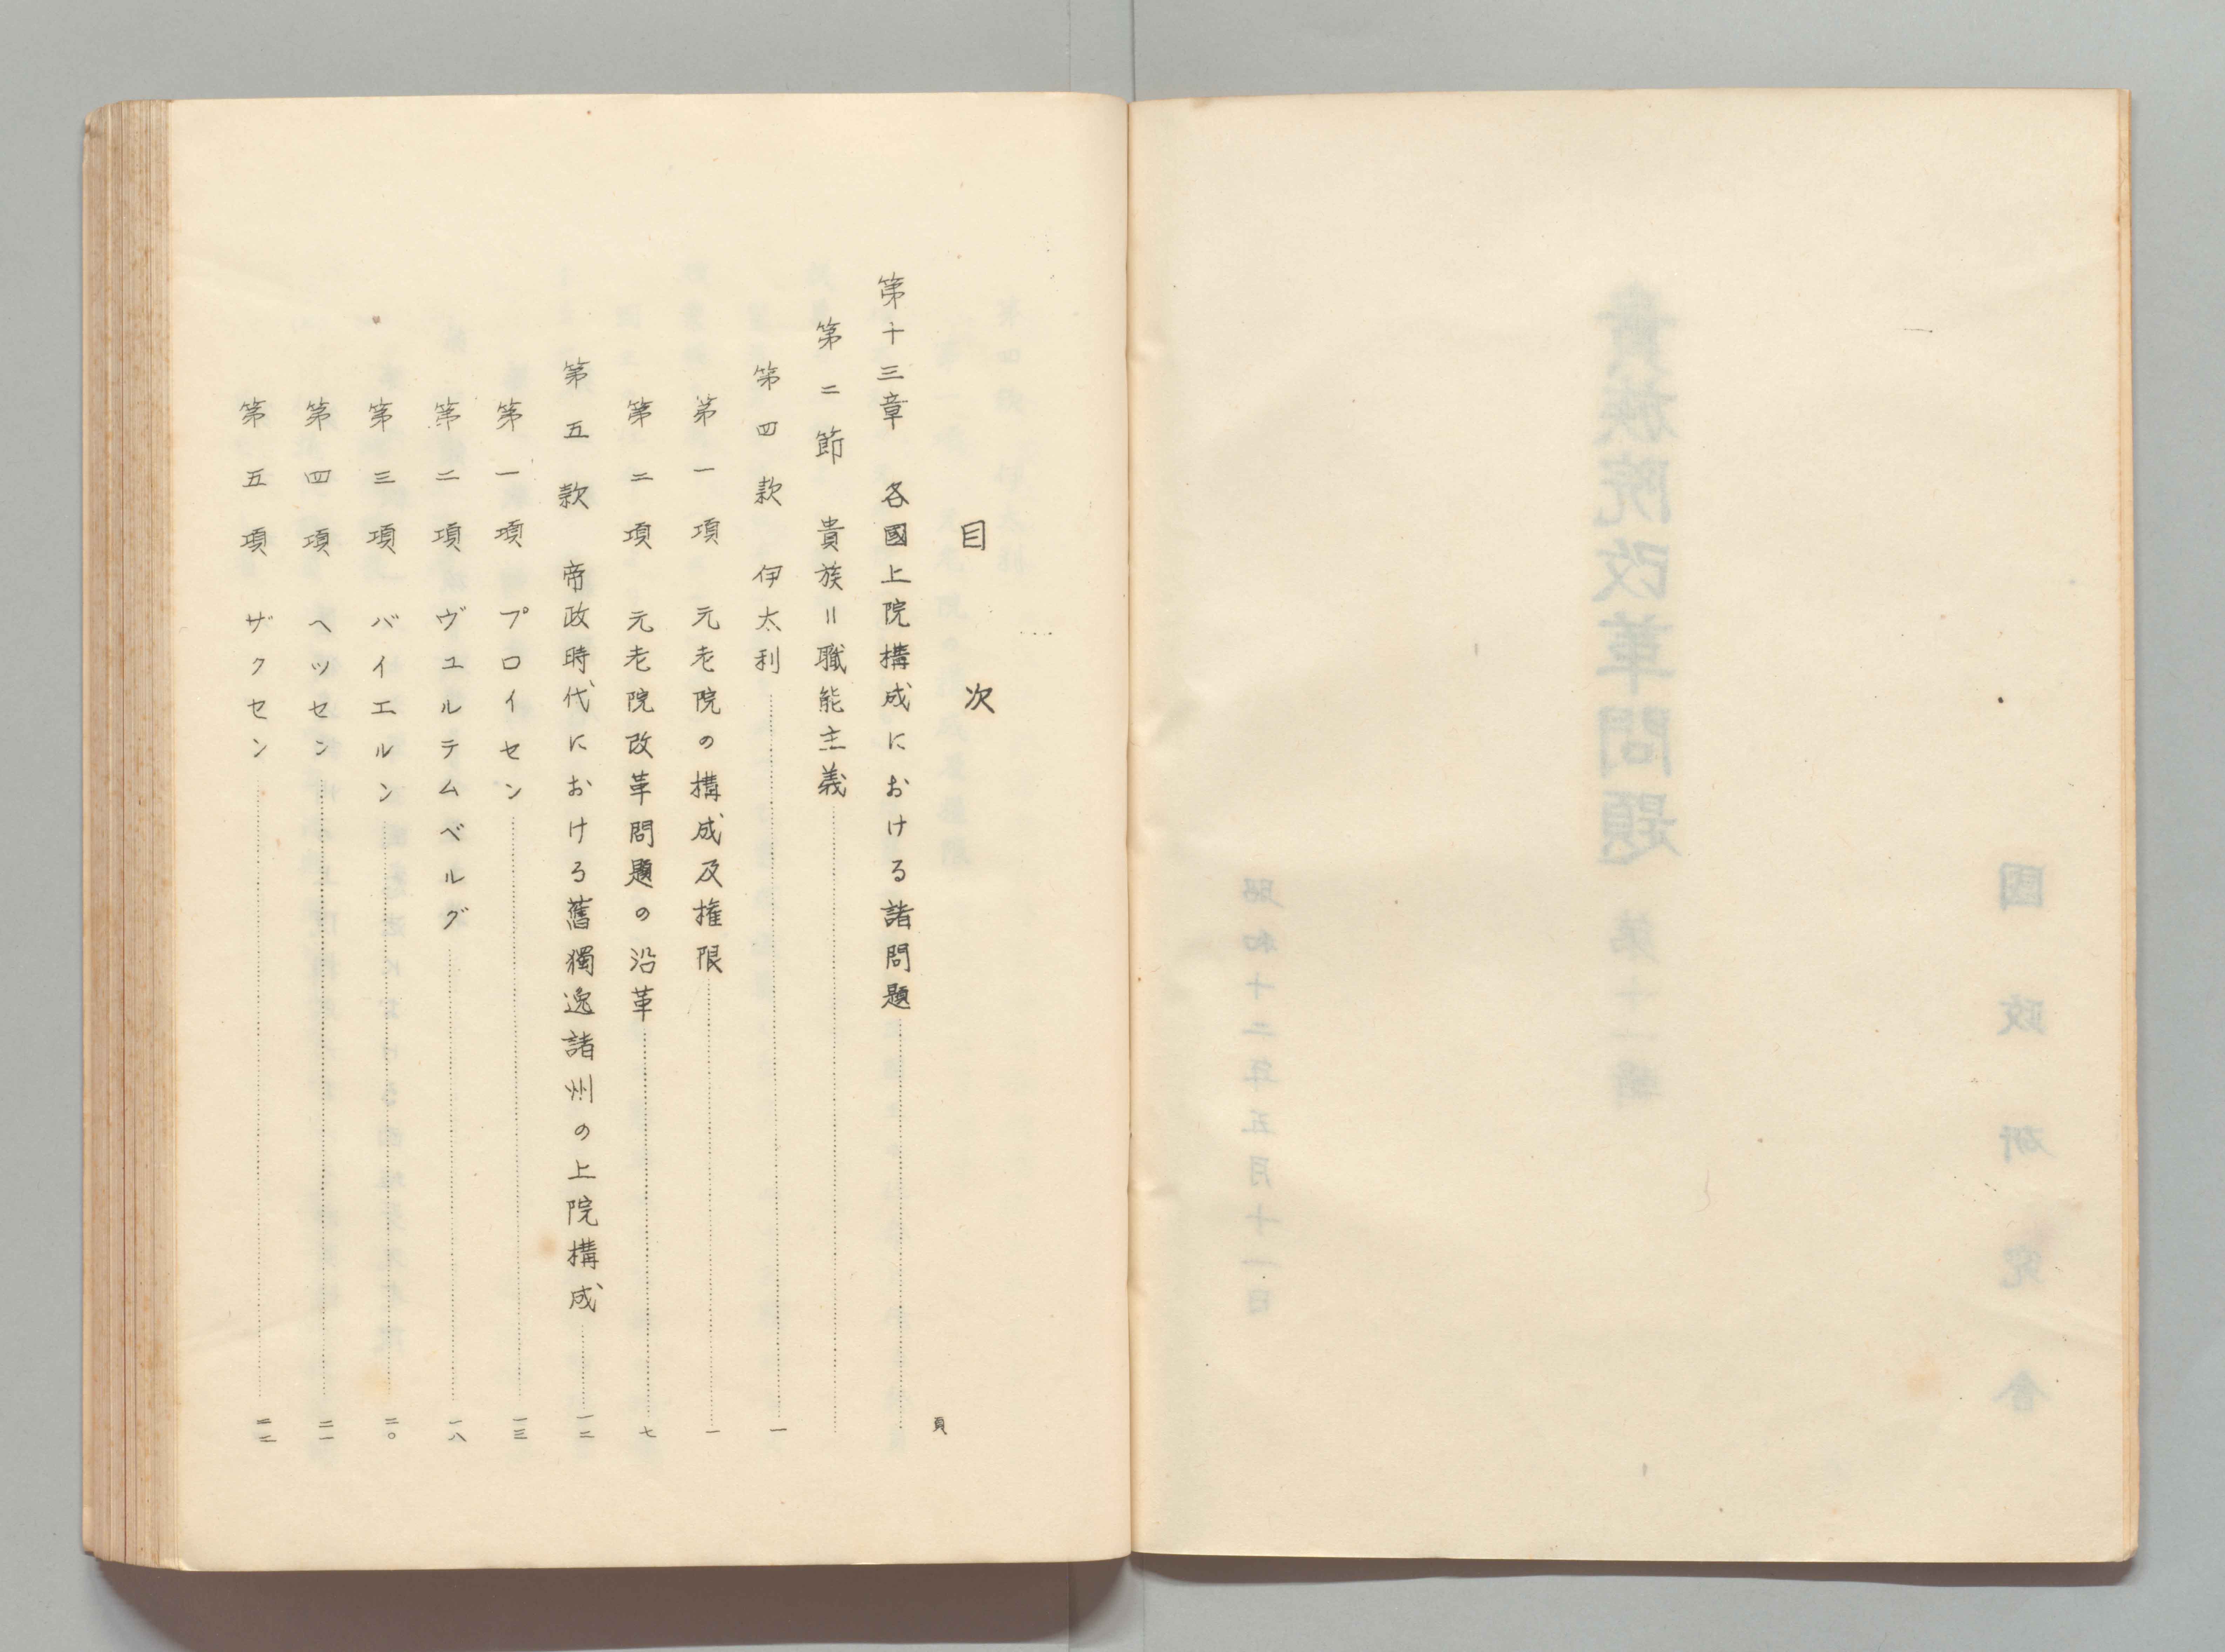 貴族院改革問題 第十一輯
昭和十二年五月十一日
國政研究會
目次
頁
第十三章 各國上院構成における諸問題
第二節 貴族=職能主義
第四款 伊太利 一
第一項 元老院の構成及権限 一
第二項 元老院改革問題の沿革 七
第五款 帝政時代における舊獨逸諸州の上院構成 一二
第一項 プロイセン 一三
第二項 ヴュルテムベルグ 一八
第三項 バイエルン 二〇
第四項 ヘッセン 二一
第五項 ザクセン 二二